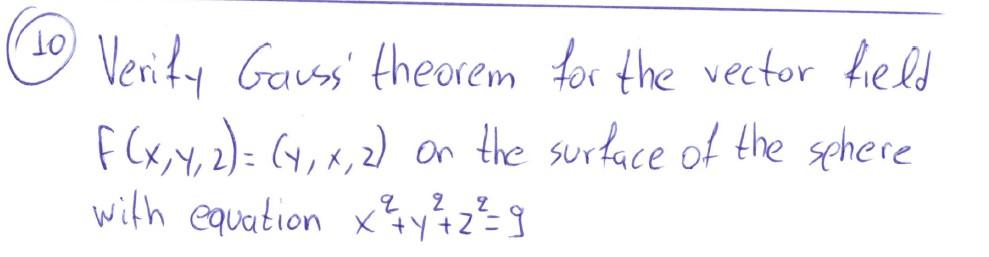 10 Verify Gauss' theorem for the vector field
F(x,y,z)=(y,x,z) on the surface of the sphere
with equation x²+y²+z²=9